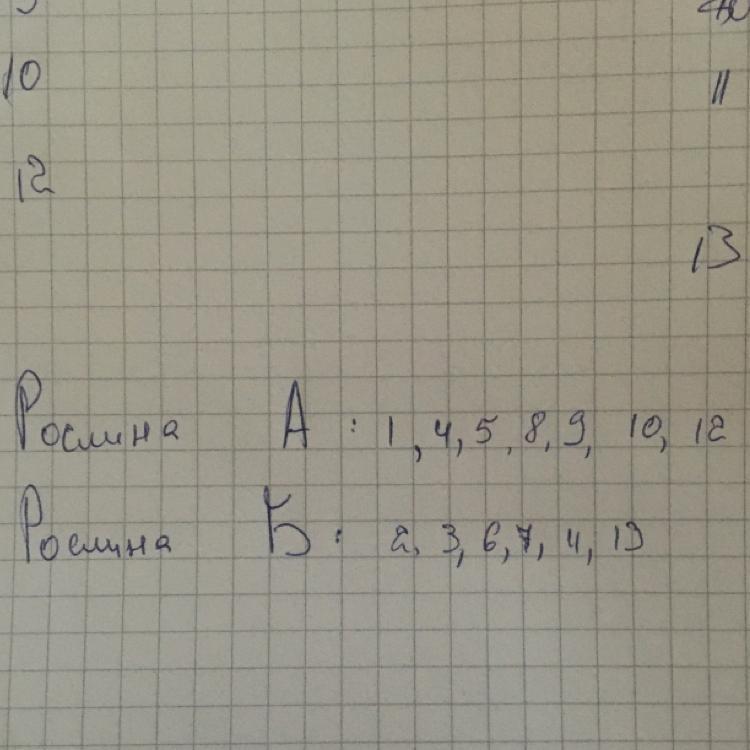 10 11
12
13
Рослина А : 1, 4, 5, 8, 9, 10, 12
Рослина Б : 2, 3, 6, 7, 11, 13